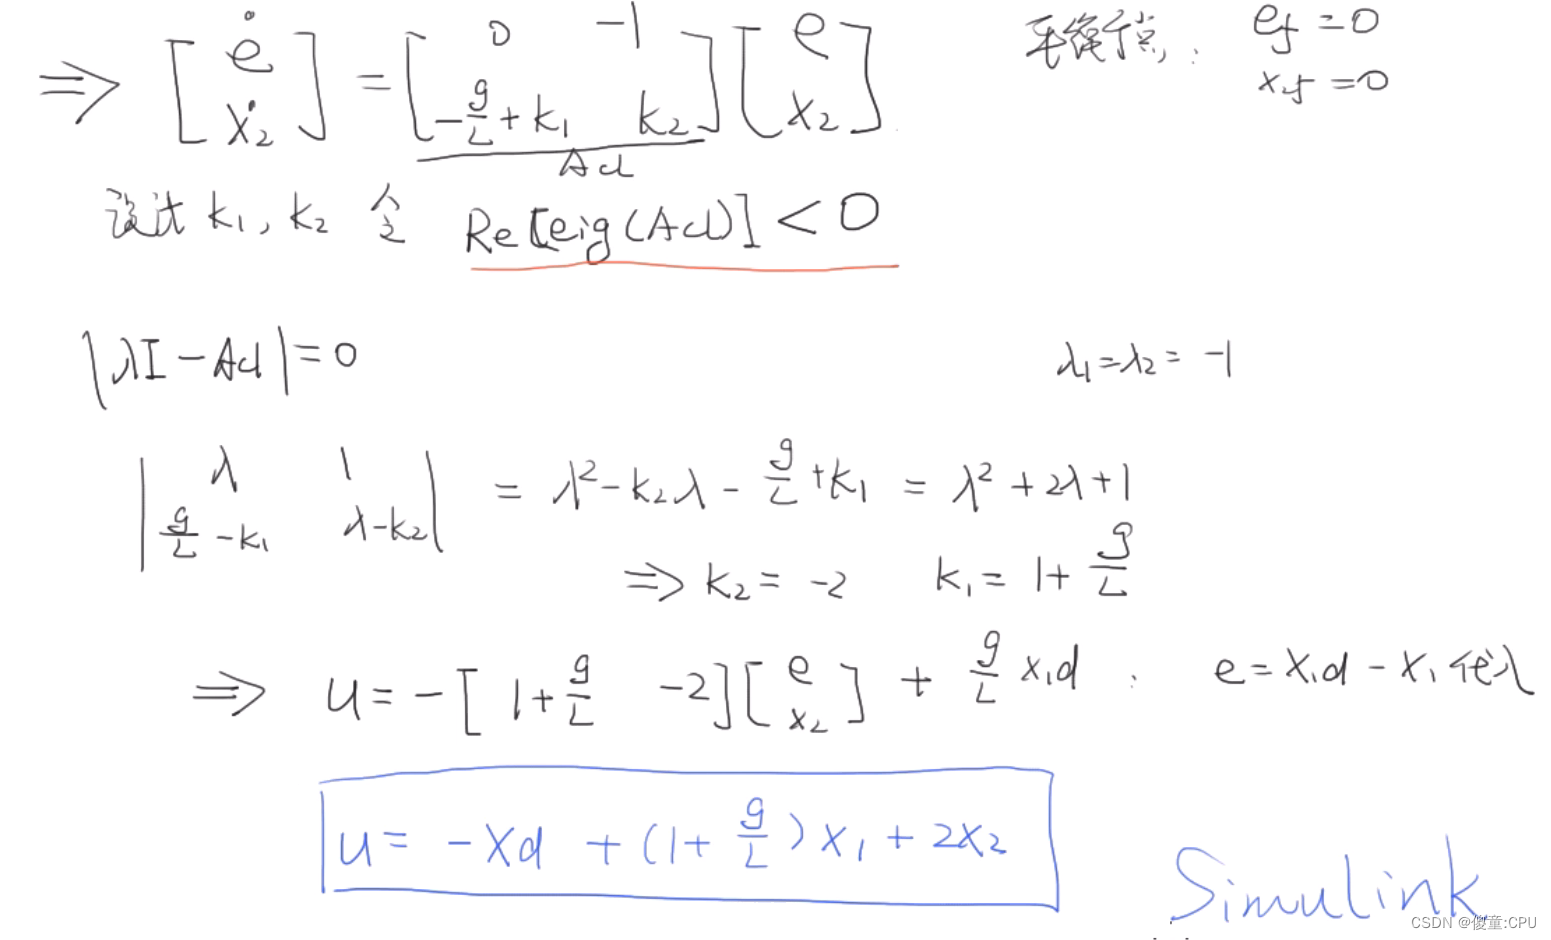 ⇒ [ė ẋ₂] = [0 -1 -g/L+k₁ k₂] [e x₂] 平衡点: ef=0
x₂f=0
Acl
设计 k₁, k₂ 令 Re[eig(Acl)] < 0
|λI - Acl| = 0 λ₁=λ₂= -1
|λ 1 g/L -k₁ λ-k₂| = λ² - k₂λ - g/L + k₁ = λ² + 2λ + 1
⇒ k₂ = -2 k₁ = 1 + g/L
⇒ u = -[1+g/L -2] [e x₂] + g/L x₁d e = x₁d - x₁ 代入
u = -xd + (1+g/L)x₁ + 2x₂
Simulink
CSDN @傻童:CPU